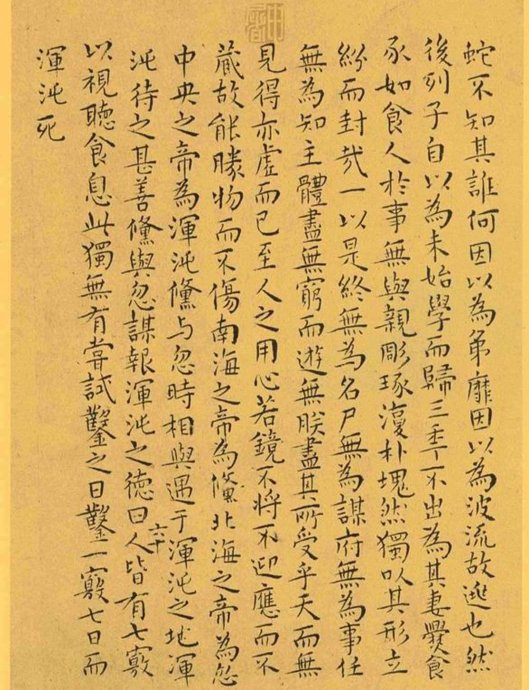 蛇不知其誰何因以為弟靡因以為波流故逃也然
後列子自以為未始學而歸三秊不出為其妻爨食
豕如食人於事無與親彫琢復朴塊然獨以其形立
紛而封哉一以是終無為名尸無為謀府無為事任
無為知主體盡無窮而遊無朕盡其所受乎天而無
見得亦虛而已至人之用心若鏡不將不迎應而不
藏故能勝物而不傷南海之帝為儵北海之帝為忽
中央之帝為渾沌儵与忽時相與遇于渾沌之地渾
沌待之甚善儵與忽謀報渾沌之德曰人皆有七竅
六十
以視聽食息此獨無有嘗試鑿之日鑿一竅七日而
渾沌死